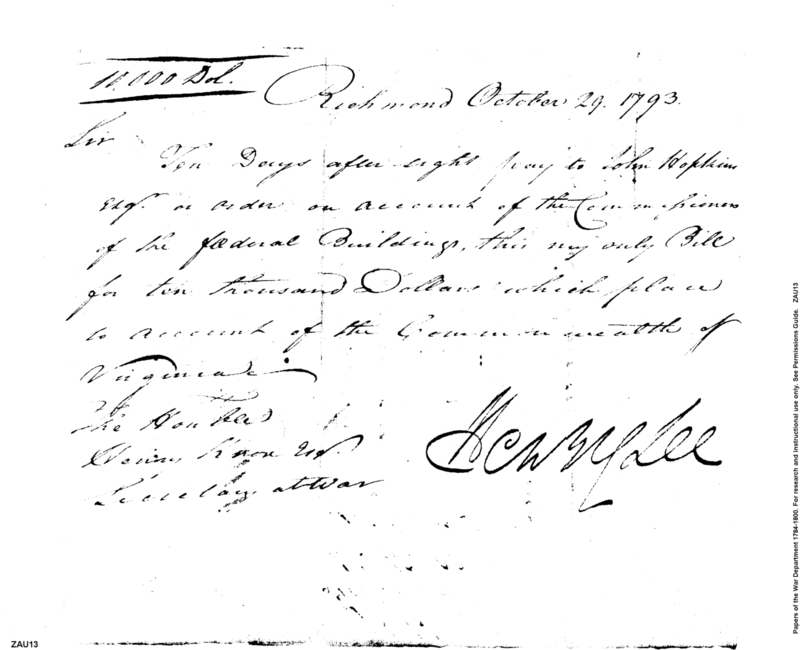 10,000 Dol.
Richmond October 29. 1793.
Sir
Ten Days after sight pay to John Hopkins
Esqr. or order on account of the Commissioners
of the fœderal Buildings, this my only Bill
for ten thousand Dollars which place
to account of the Commonwealth of
Virginia
The Honble
Henry Knox Esqr.
Secretary at War
Henry Lee
Papers of the War Department 1784-1800. For research and instructional use only. See Permissions Guide. ZAU13
ZAU13